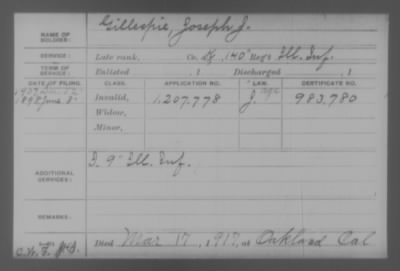 NAME OF SOLDIER: Gillespie, Joseph J.
SERVICE: Late rank, Co. K, 140" Reg't Ill. Inf.
TERM OF SERVICE: Enlisted , 1 Discharged , 1
DATE OF FILING. CLASS. APPLICATION NO. LAW. CERTIFICATE NO.
1898 June Invalid, 1,207,778 J. age 983,780
Widow,
Minor,
ADDITIONAL SERVICES: 9" Ill. Inf.
REMARKS:
Died Mar 17, 1917, at Oakland Cal